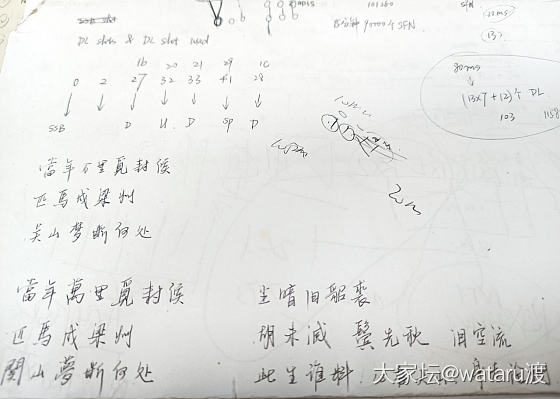 DL slots & DL slot used
15分钟 90000个SFN
101280
SFN
80ms
(13x7+12)个 DL
103
1158
16 20 21 29 10
0 2 27 32 33 41 28
SSB D U D SP D
當年万里覓封侯
匹馬戍梁州
关山梦断何处
當年萬里覓封侯
匹馬戍梁州
關山夢斷何处
尘暗旧貂裘
胡未滅 鬓先秋 泪空流
此生谁料
大家坛@wataru渡